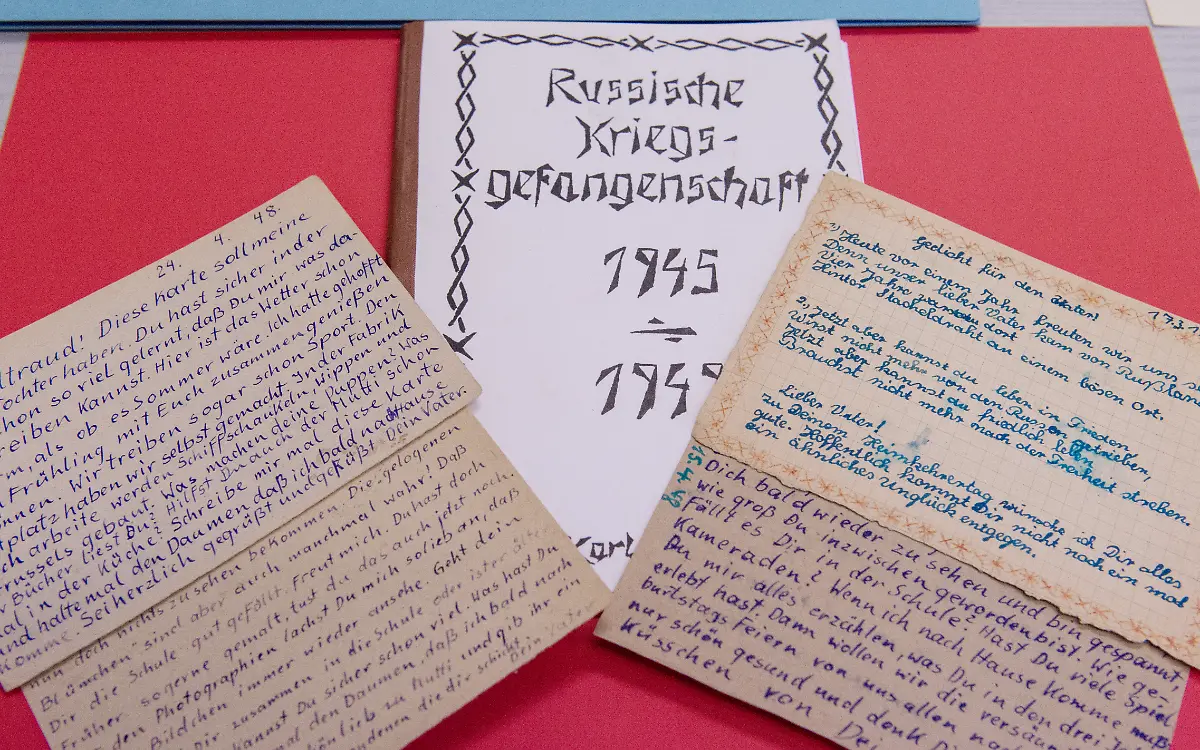 Russische
Kriegs-
gefangenschaft
1945
÷
194
24. 4. 48.
ltraud! Diese Karte soll meine
Tochter haben. Du hast sicher in der
schon so viel gelernt, daß Du mir was da-
reiben kannst. Hier ist das Wetter schon
rm, als ob es Sommer wäre. Ich hatte gehofft
Frühling mit Euch zusammen genießen
nnen. Wir treiben sogar schon Sport. Den
tplatz haben wir selbst gemacht. In der Fabrik
ch arbeite werden Schiffschaukeln, Wippen und
russels gebaut. Was machen deine Puppen? Was
r Bücher liest Du? Hilfst Du auch der Mutti schon
mal in der Küche? Schreibe mir mal diese Karte
und halte mal den Daumen, daß ich bald nach Hause
komme. Sei herzlich gegrüßt und geküßt Dein Vater
doch nichts zu sehen bekommen. Die gelogenen
Blümchen" sind aber auch manchmal wahr! Daß
Dir die Schule gut gefällt, freut mich. Du hast doch
früher so gerne gemalt, tust du das auch jetzt noch.
den Photographien lachst Du mich so lieb an, daß
Bildchen immer wieder ansehe. Geht dein
Dir zusammen in die Schule oder ist er älter
kannst Du sicher schon viel. Was hast Du
mal den Daumen, daß ich bald nach
lieb zu Mutti und gib ihr ein
anderen die dir schickt
Dein Vater
Gedicht für den Vater!
1) Heute vor einem Jahr freuten wir uns
Denn unser lieber Vater kam von Rußlan
Vier Jahre dort
Hinter Stacheldraht an einem bösen Ort.
2, Jetzt aber kannst du leben in Frieden
Wirst nicht mehr von den Russen getrieben,
Jetzt aber kannst du friedlich leben,
Brauchst nicht mehr nach der Freiheit streben.
Lieber Vater!
zu Deinem Heimkehrertag wünsche ich Dir alles
gute. Hoffentlich kommt Dir nicht noch ein mal
ein ähnliches Unglück entgegen.
Dich bald wieder zu sehen und bin gespannt,
wie groß Du inzwischen geworden bist. Wie ge-
fällt es Dir in der Schule? Hast Du viele Spiel
Kameraden? Wenn ich nach Hause komme, muß
Du mir alles erzählen, was Du in den drei J
erlebt hast. Dann wollen wir die versäu
burtstagsfeiern von uns allen na
nur schön gesund und denk D
Küsschen von De